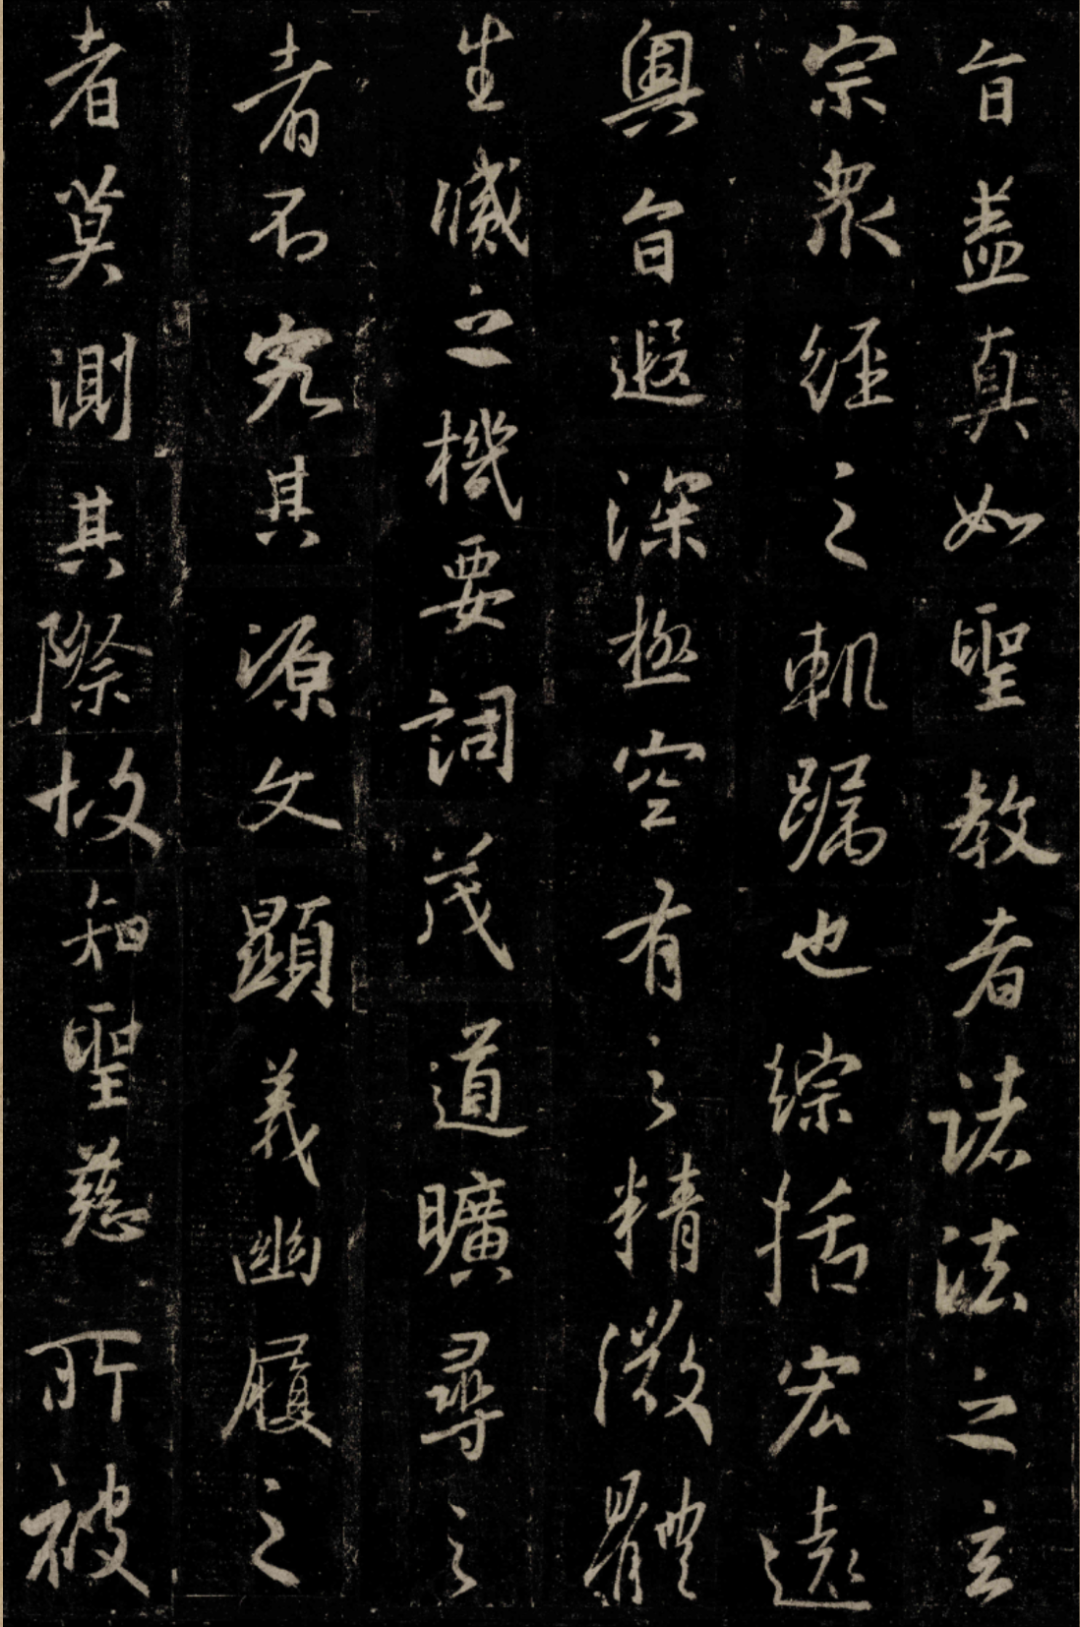 旨盡真如聖教者諸法之玄
宗衆經之軌躅也綜括宏遠
奧旨遐深極空有之精微體
生滅之機要詞茂道曠尋之
者不究其源文顯義幽履之
者莫測其際故知聖慈所被